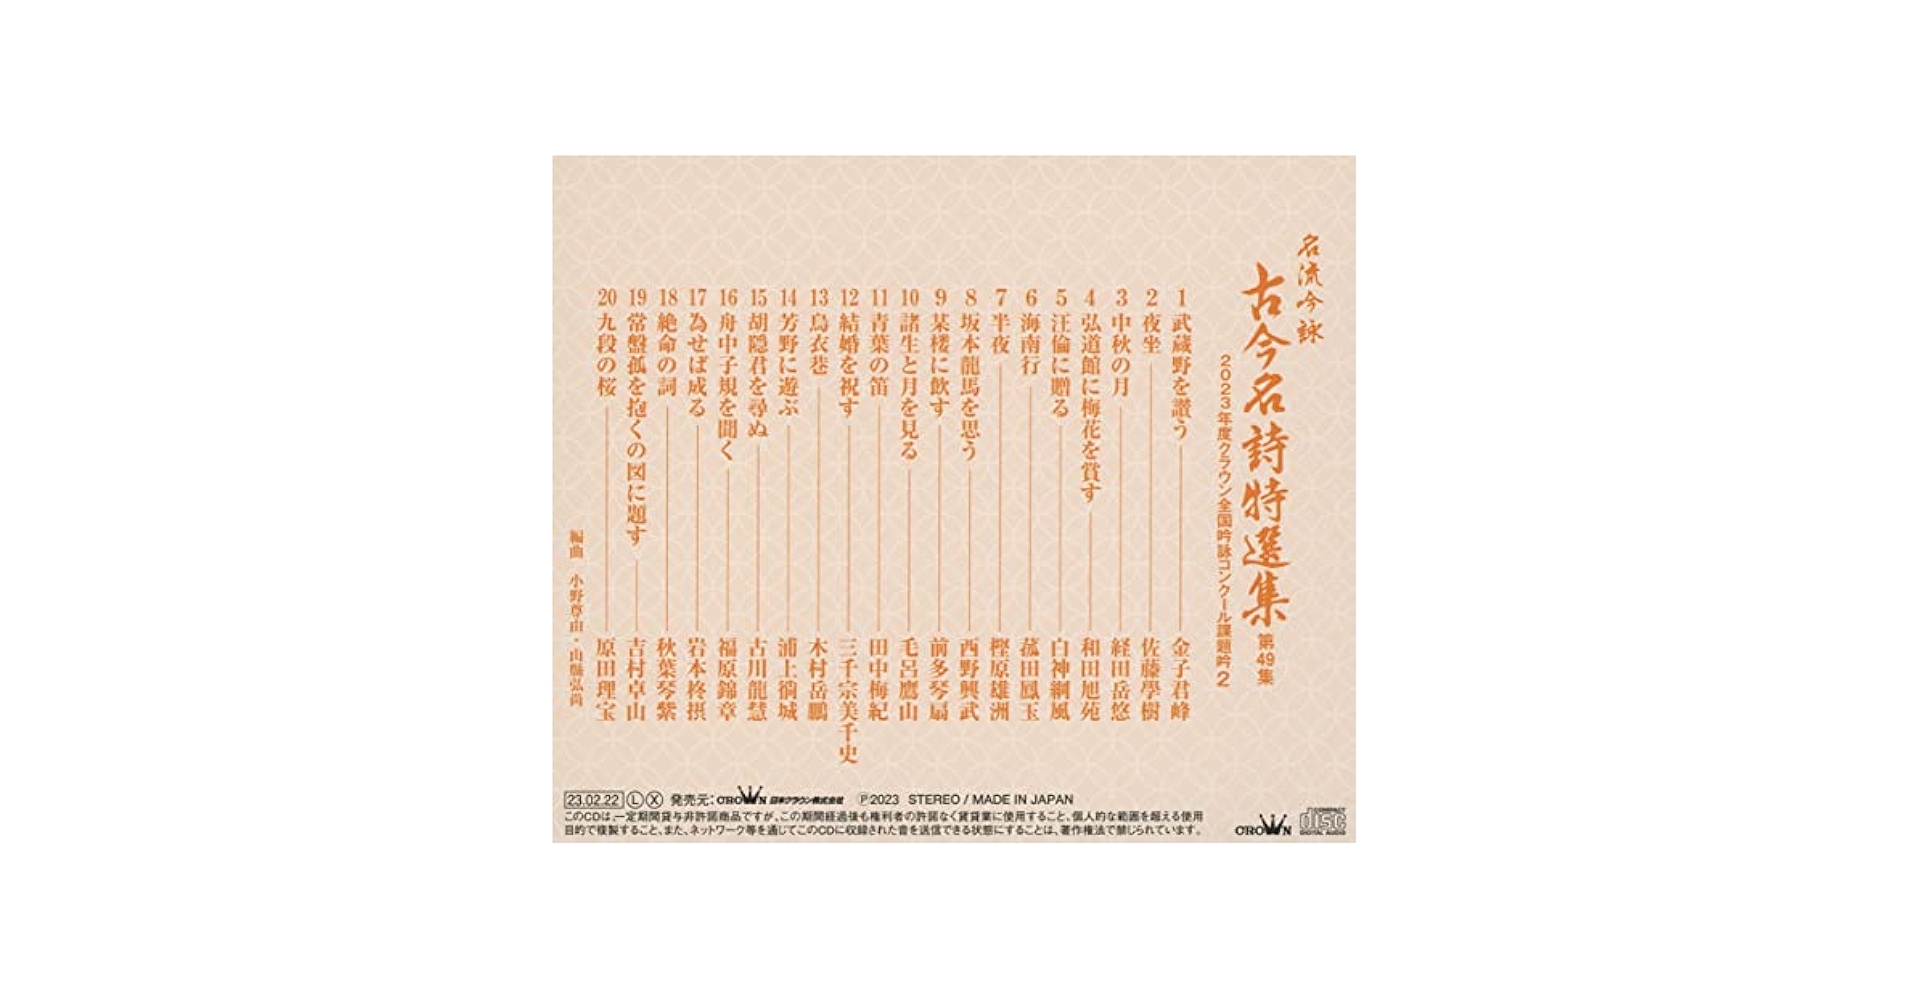 名流今詠
古今名詩特選集 第49集
2023年度クラウン全国吟詠コンクール課題吟2
1 武蔵野を讃う 金子君峰
2 夜坐 佐藤學樹
3 中秋の月 経田岳悠
4 弘道館に梅花を賞す 和田旭苑
5 汪倫に贈る 白神綱風
6 海南行 菰田鳳玉
7 半夜 樫原雄洲
8 坂本龍馬を思う 西野興武
9 某楼に飲す 前多琴扇
10 諸生と月を見る 毛呂鷹山
11 青葉の笛 田中梅紀
12 結婚を祝す 三千宗美千史
13 烏衣巷 木村岳鵬
14 芳野に遊ぶ 浦上鵃城
15 胡隠君を尋ぬ 古川龍慧
16 舟中子規を聞く 福原錦章
17 為せば成る 岩本柊摂
18 絶命の詞 秋葉琴紫
19 常盤孤を抱くの図に題す 吉村卓山
20 九段の桜 原田理宝
編曲 小野尊由・山勝弘尚
23.02.22 L X 発売元:CROWN 日本クラウン株式会社 Ⓟ2023 STEREO / MADE IN JAPAN
このCDは、一定期間貸与非許諾商品ですが、この期間経過後も権利者の許諾なく賃貸業に使用すること、個人的な範囲を超える使用
目的で複製すること、また、ネットワーク等を通じてこのCDに収録された音を送信できる状態にすることは、著作権法で禁じられています。
CROWN
COMPACT
disc
DIGITAL AUDIO